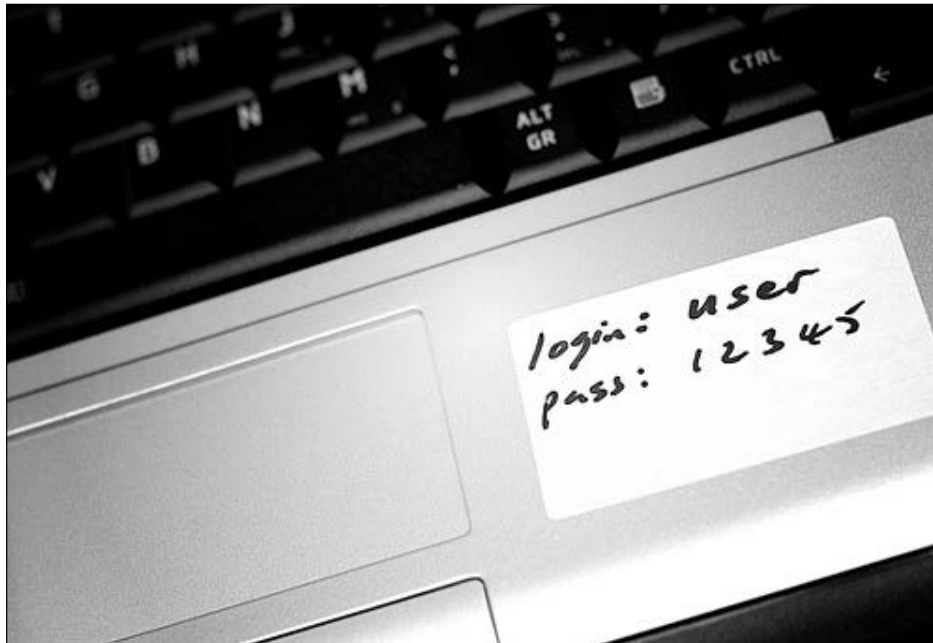 G H J
V B N M ; :
ALT GR CTRL ←
login: user
pass: 12345